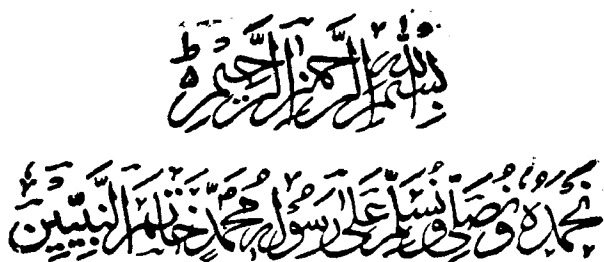 بِسْمِ اللّٰهِ الرَّحْمٰنِ الرَّحِيْمِ ط
نَحْمَدُهٗ وَ نُصَلِّیْ وَ نُسَلِّمُ عَلٰی رَسُوْلِهٖ مُحَمَّدٍ خَاتَمِ النَّبِیِّیْنَ